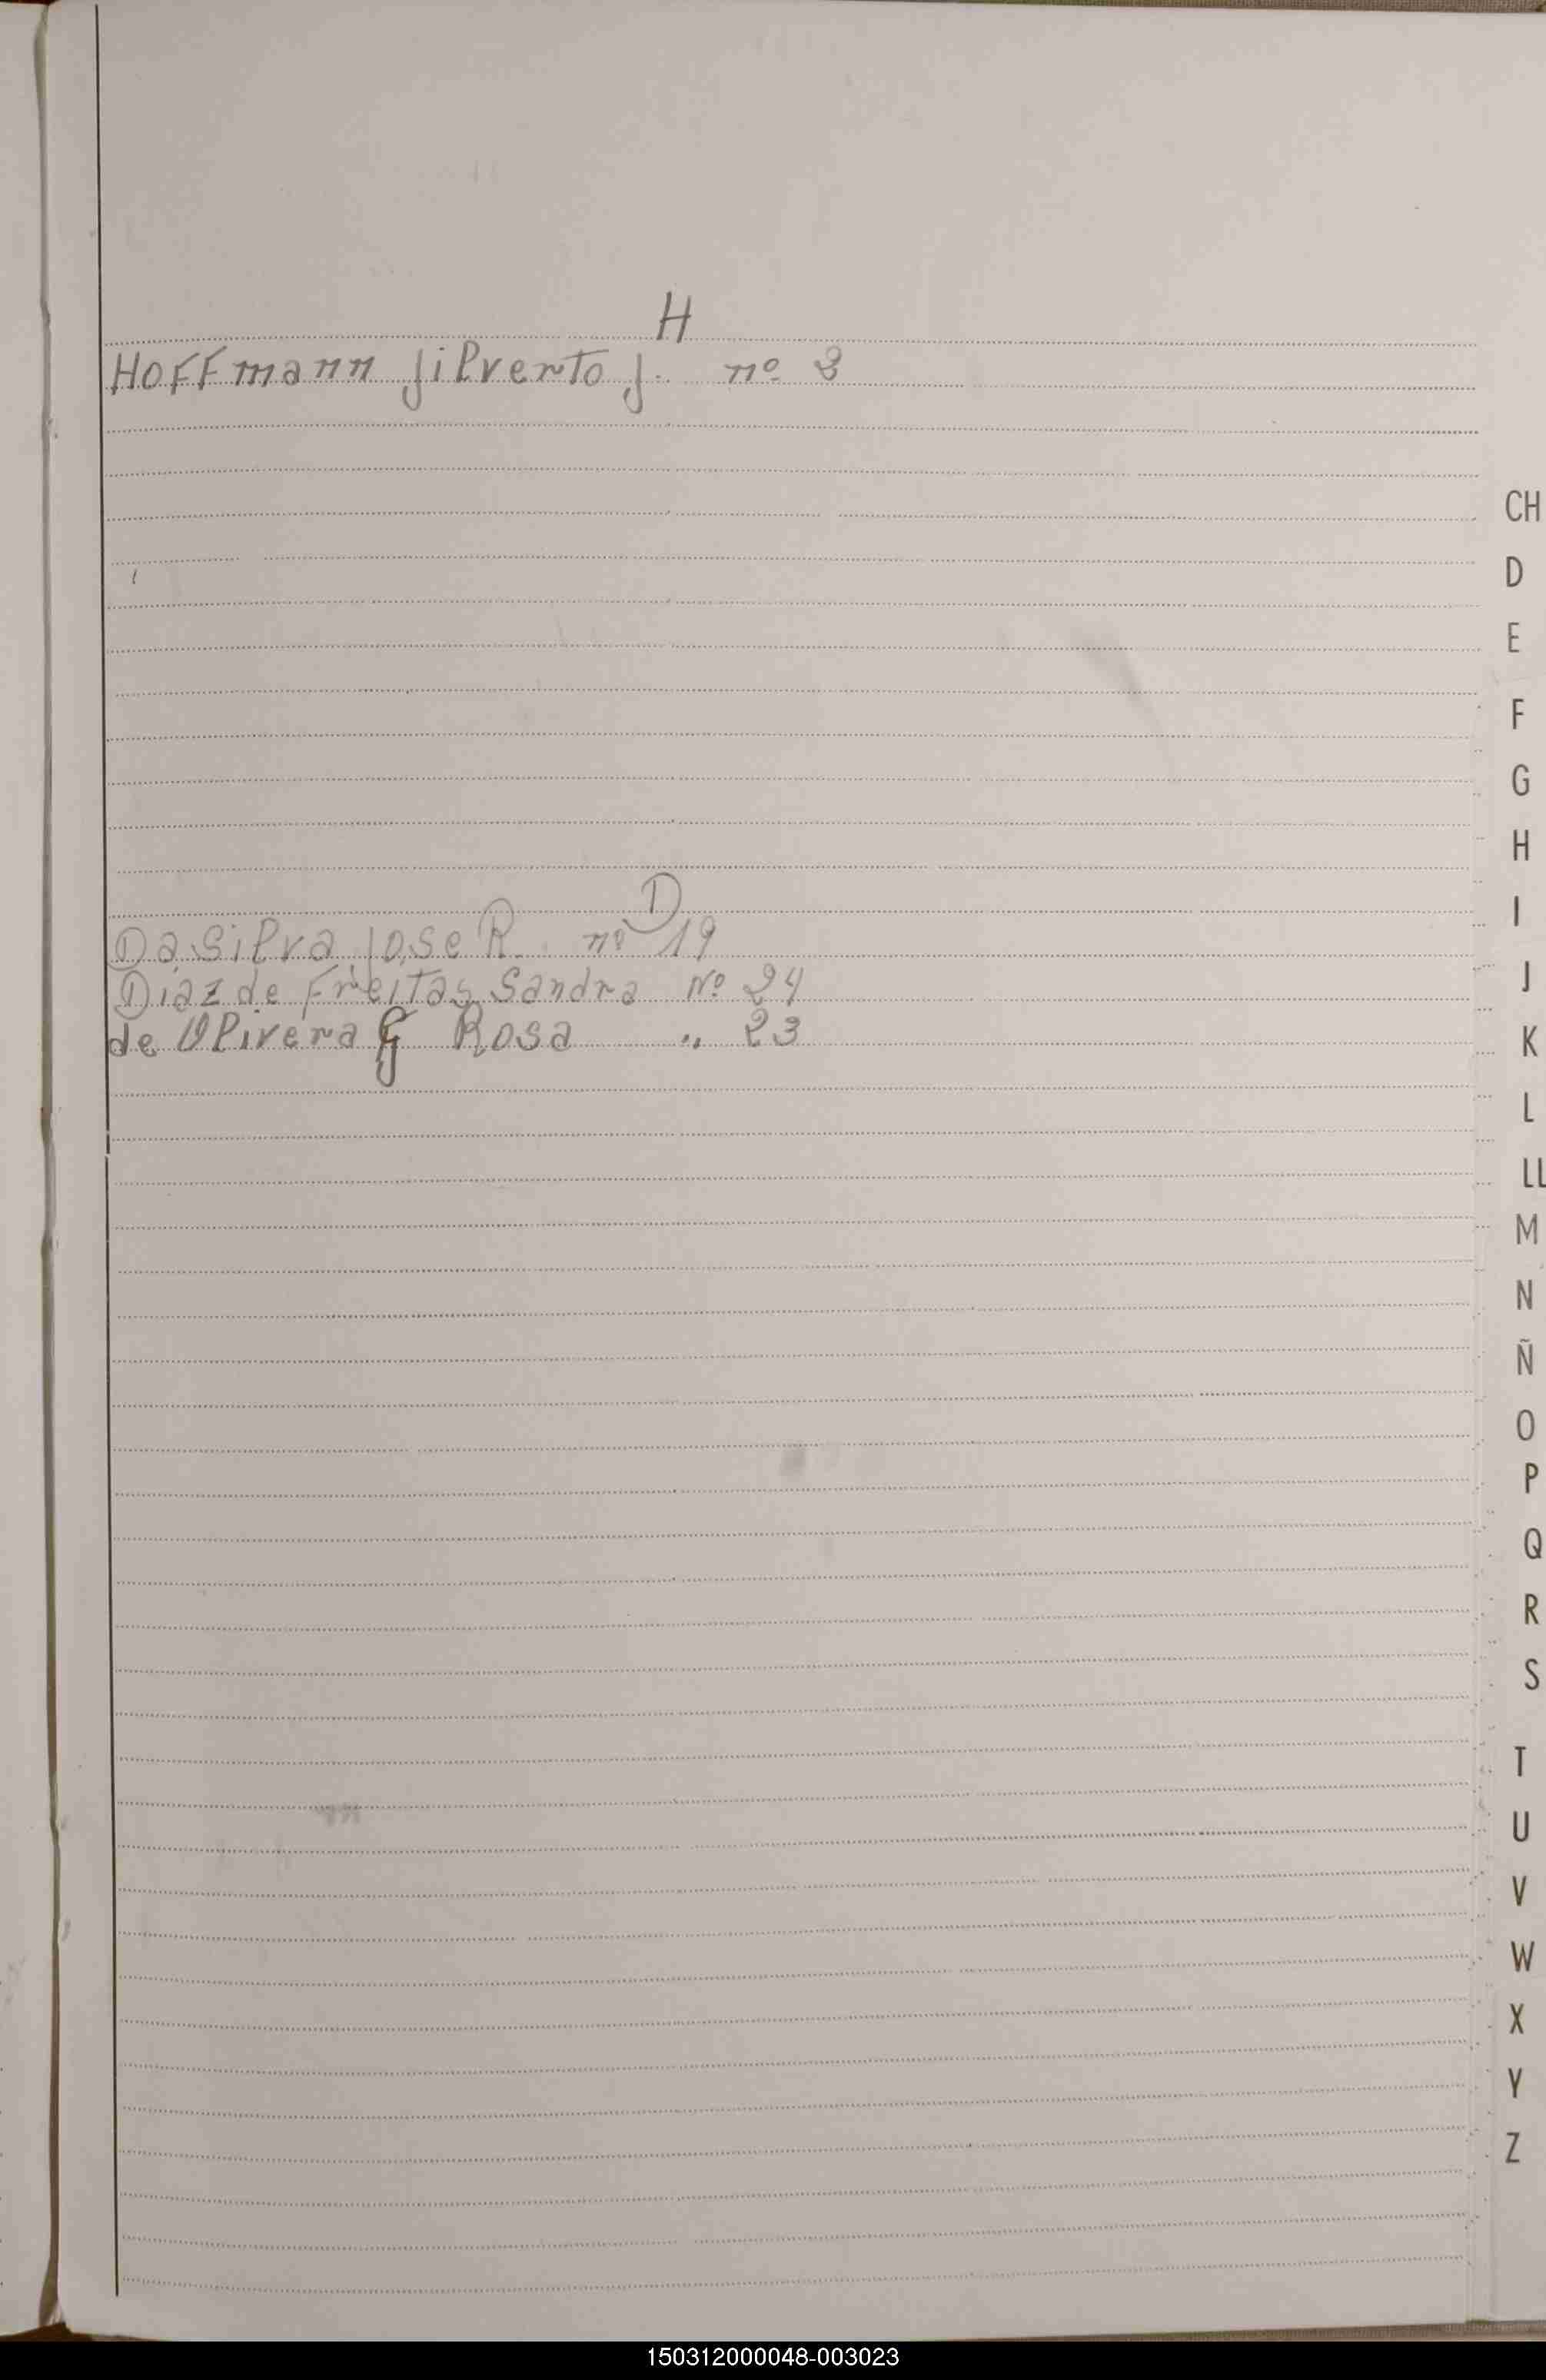 H
Hoffmann Silverto J. nº 3
CH
D
E
F
G
H
I
D
Da Silva Jose R. nº 19
J
Diaz de Freitas Sandra Nº 24
K
de Olivera G Rosa " 23
L
LL
M
N
Ñ
O
P
Q
R
S
T
U
V
W
X
Y
Z
150312000048-003023